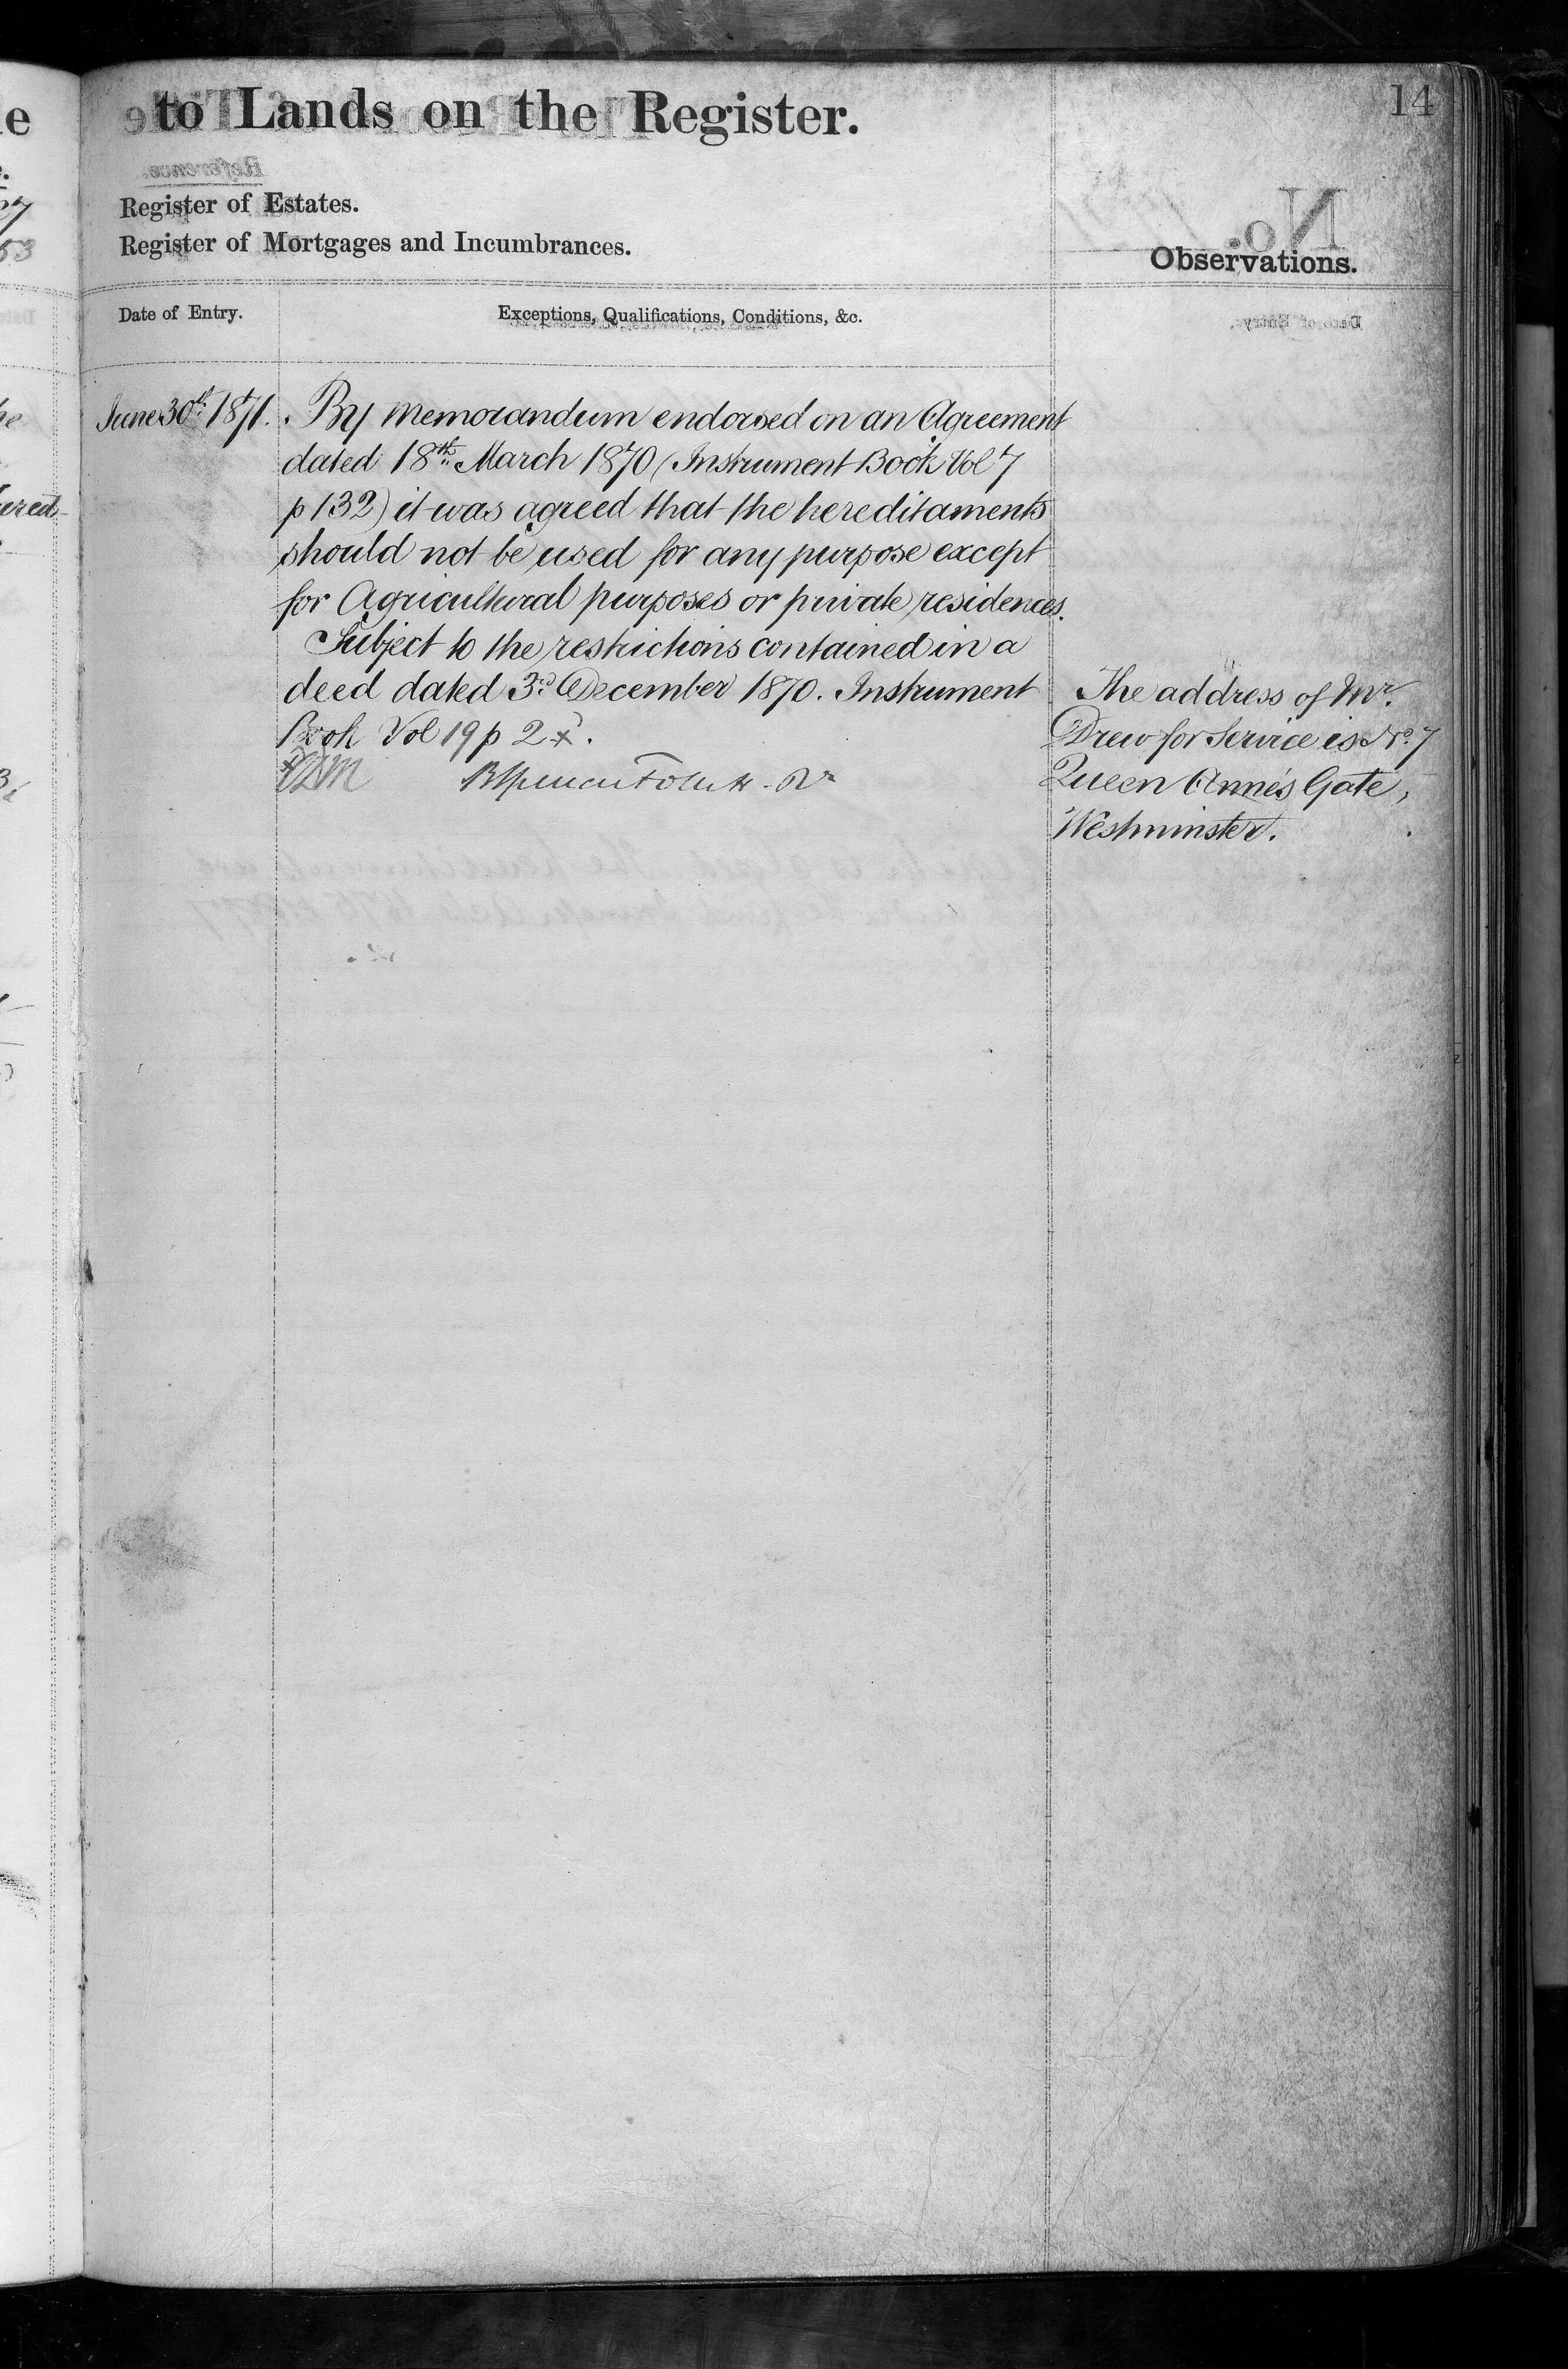 to Lands on the Register.
14
Register of Estates.
Register of Mortgages and Incumbrances.
Observations.
Date of Entry.
Exceptions, Qualifications, Conditions, &c.
June 30th 1871.
By Memorandum endorsed on an Agreement
dated 18th March 1870 (Instrument Book Vol 7
p 132) it was agreed that the hereditaments
should not be used for any purpose except
for Agricultural purposes or private residences.
Subject to the restrictions contained in a
deed dated 3rd December 1870. Instrument
Book Vol 19 p 2 x.
The address of Mr.
Drew for Service is No. 7
Queen Anne's Gate,
Westminster.